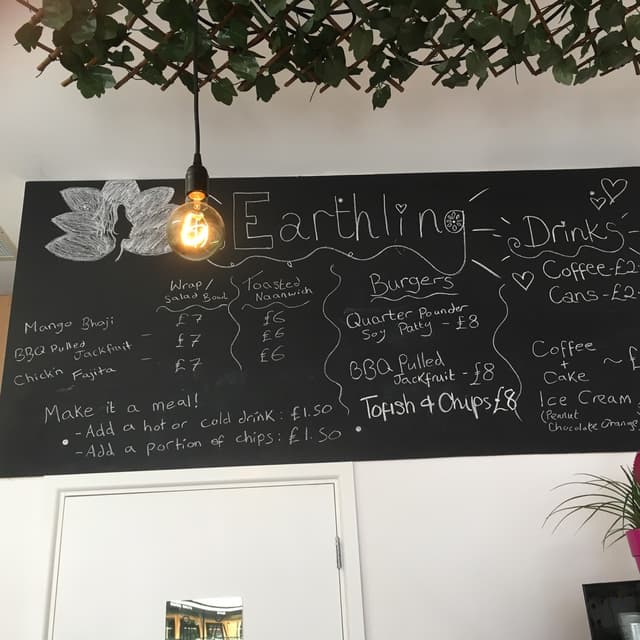 Earthling
Wrap/
Salad Bowl
Toasted
Naanwich
Mango Bhaji - £7 £6
BBQ Pulled
Jackfruit - £7 £6
Chick'n Fajita - £7 £6
Make it a meal!
- Add a hot or cold drink: £1.50
- Add a portion of chips: £1.50
Burgers
Quarter Pounder
Soy Patty - £8
BBQ Pulled
Jackfruit - £8
Tofish & Chups £8
Drinks
Coffee - £2
Cans - £2
Coffee
+
Cake ~ £
Ice Cream
(Peanut
Chocolate Orange